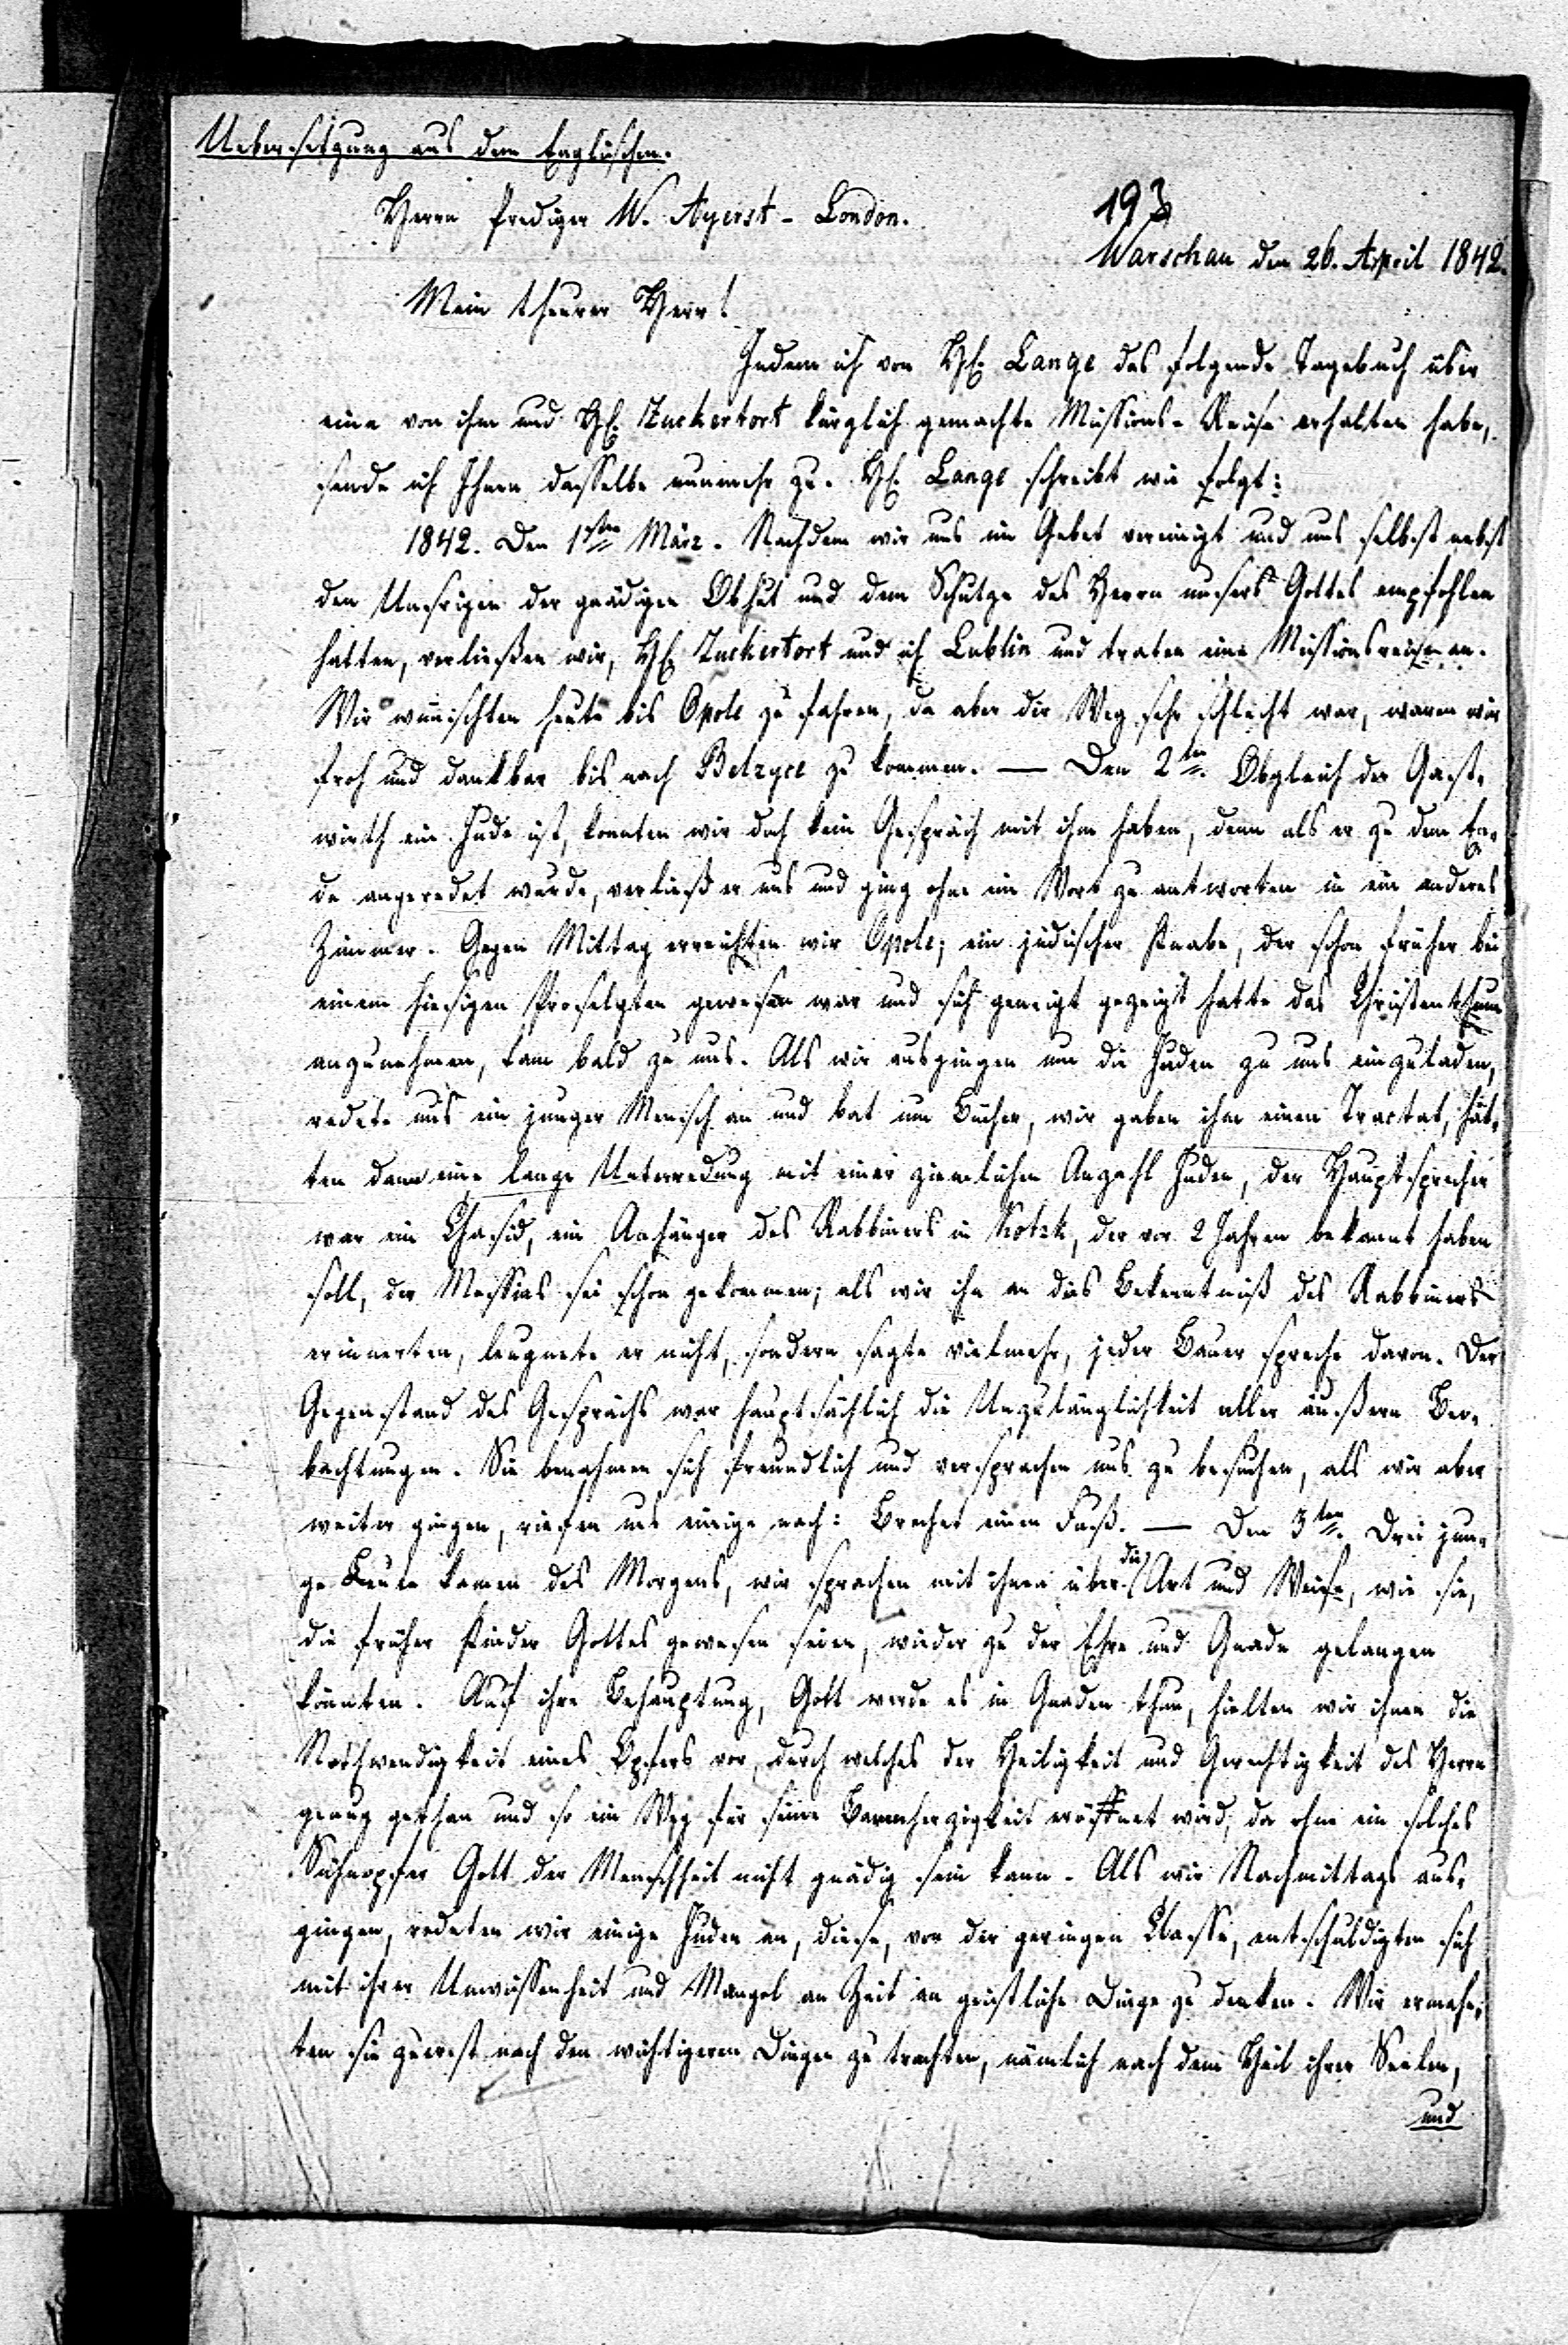 Uebersetzung aus dem Englischen.
Herrn Prediger W. Ayerst - London.
193
Warschau den 26. April 1842.
Mein theurer Herr!
Indem ich von H. Lange das folgende Tagebuch über
eine von ihm und H. Zuckertort kürzlich gemachte Missions-Reise erhalten habe,
sende ich Ihnen dasselbe nunmehr zu. H. Lange schreibt wie folgt:
1842. Den 1sten März. Nachdem wir uns im Gebet vereinigt und uns selbst nebst
den Unsrigen der gnädigen Obhut und dem Schutze des Herrn unsers Gottes empfohlen
hatten, verließen wir, H. Zuckertort und ich Lublin und traten eine Missionsreise an.
Wir wünschten heute bis Opole zu fahren, da aber die Weg sehr schlecht war, waren wir
froh und dankbar bis nach Belzyce zu kommen. — Den 2ten. Obgleich der Gast-
wirth ein Jude ist, konnten wir doch kein Gespräch mit ihm haben, denn als er zu dem En-
de angeredet wurde, verließ er uns und ging ohne ein Wort zu antworten in ein anderes
Zimmer. Gegen Mittag erreichten wir Opole; ein jüdischer Knabe, der schon früher bei
einem hiesigen Proselyten gewesen war und sich geneigt gezeigt hatte das Christenthum
anzunehmen, kam bald zu uns. Als wir ausgingen um die Juden zu uns einzuladen,
redete uns ein junger Mensch an und bat um Bücher, wir gaben ihm einen Tractat, hat-
ten dann eine lange Unterredung mit einer ziemlichen Anzahl Juden, der Hauptsprecher
war ein Chasid, ein Anhänger des Rabbiners in Kotzk, der vor 2 Jahren bekannt haben
soll, der Messias sei schon gekommen; als wir ihn an dies Bekenntniß des Rabbiners
erinnerten, leugnete er nicht, sondern sagte vielmehr, jeder Bauer spreche davon. Der
Gegenstand des Gesprächs war hauptsächlich die Unzulänglichkeit aller äußern Beo-
bachtungen. Sie benahmen sich freundlich und versprachen uns zu besuchen, als wir aber
weiter gingen, riefen uns einige nach: Brechet einen Fuß. — Den 3ten. Drei jun-
ge Leute kamen des Morgens, wir sprachen mit ihnen über die Art und Weise, wie sie,
die früher Kinder Gottes gewesen seien, wieder zu der Ehre und Gnade gelangen
könnten. Auf ihre Behauptung, Gott werde es in Gnaden thun, hielten wir ihnen die
Nothwendigkeit eines Opfers vor, durch welches der Heiligkeit und Gerechtigkeit des Herrn
genug gethan und so ein Weg für seine Barmherzigkeit eröffnet wird, da ohne ein solches
Sühnopfer Gott der Menschheit nicht gnädig sein kann. Als wir Nachmittags aus-
gingen, redeten wir einige Juden an, diese, von der geringen Classe, entschuldigten sich
mit ihrer Unwissenheit und Mangel an Zeit an geistliche Dinge zu denken. Wir ermahn-
ten sie zuerst nach den wichtigeren Dingen zu trachten, nämlich nach dem Heil ihrer Seelen,
und